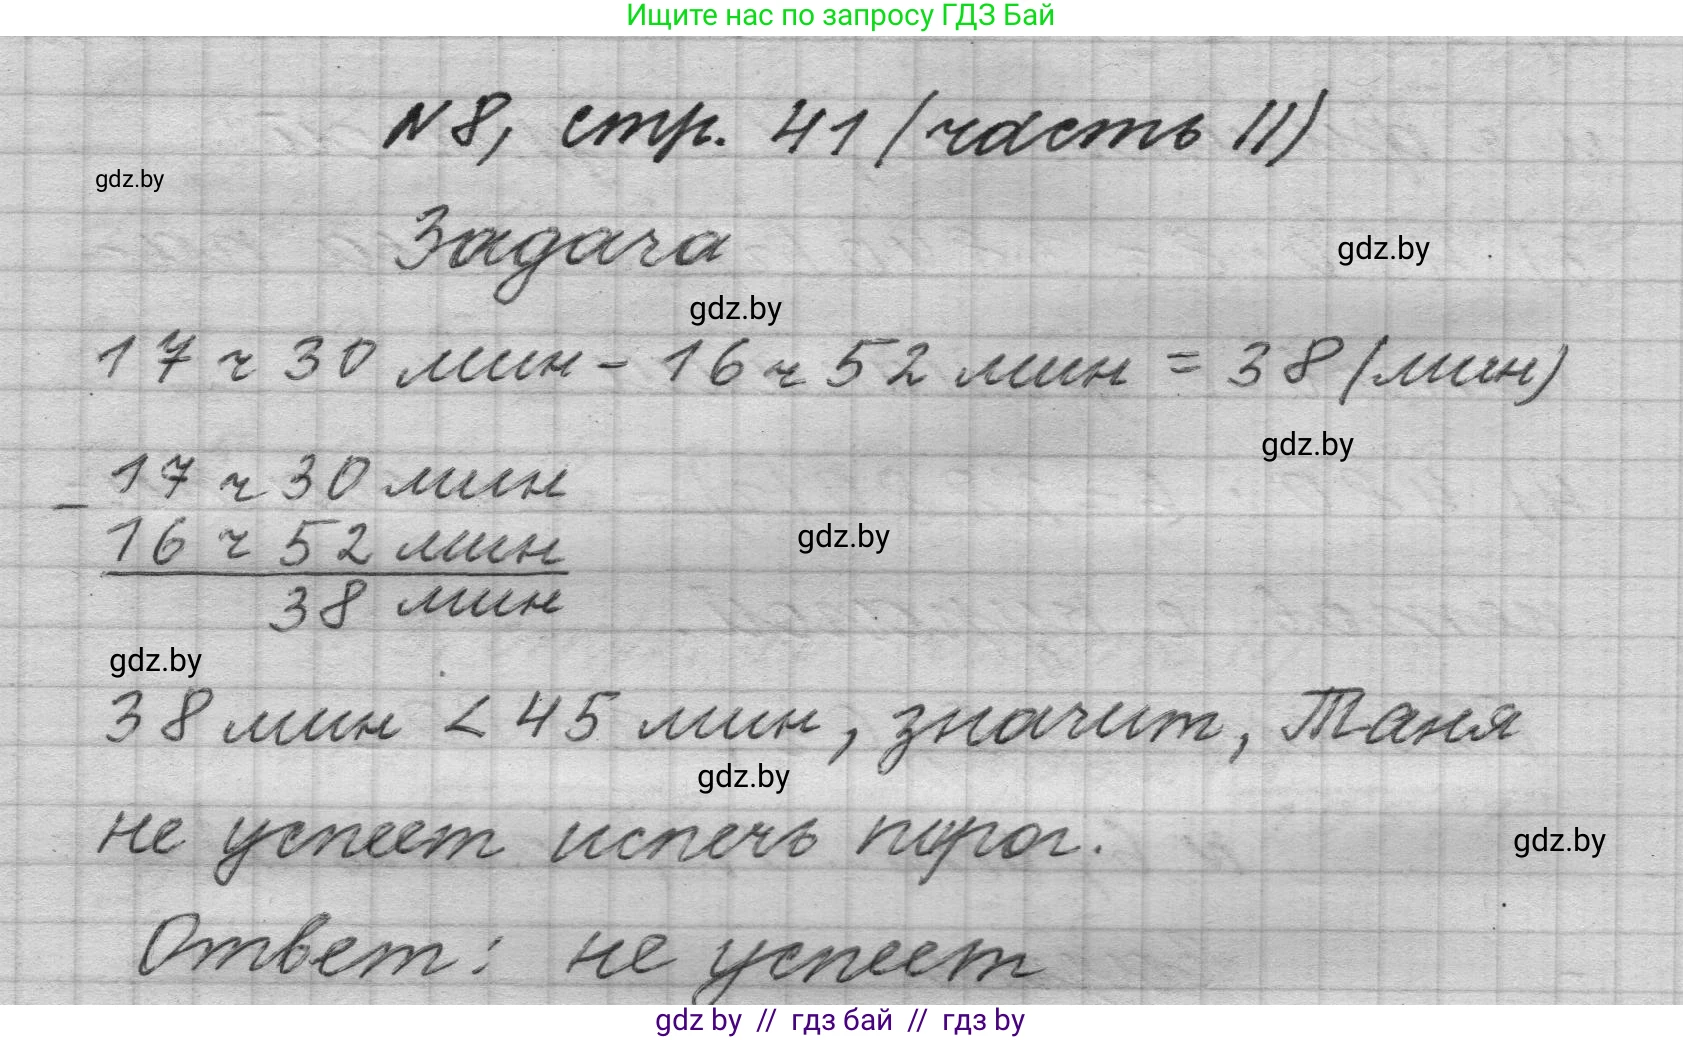 Ищите нас по запросу ГДЗ Бай
№8, стр. 41 (часть II)
gdz.by
Задача
gdz.by
gdz.by
17 ч 30 мин - 16 ч 52 мин = 38 (мин)
gdz.by
- 17 ч 30 мин
16 ч 52 мин
gdz.by
38 мин
gdz.by
38 мин < 45 мин, значит, Таня
gdz.by
не успеет испечь пирог.
gdz.by
Ответ: не успеет
gdz by // гдз бай // гдз by